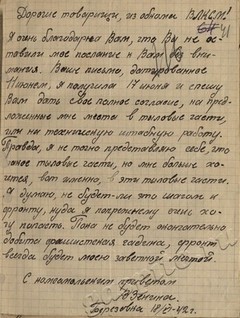 Дорогие товарищи, из обкома ВЛКСМ!
41
Я очень благодарна Вам, что Вы не ос-
тавили мое послание к Вам без вни-
мания. Ваше письмо, датированное
июнем, я получила 17 июня и спешу
Вам дать свое полное согласие, на пред-
ложенные мне места в тыловые части,
или на техническую штабную работу.
Правда, я не точно представляю себе, что
такое тыловые части, но мне больше хо-
чется, вот именно, в эти тыловые части.
Я думаю, не будет-ли это шагом к
фронту, куда я попрежнему очень хо-
чу попасть. Пока не будет окончательно
добита фашистская гадина, фронт
всегда будет моею заветной мечтой
С комсомольским приветом
18/VI-42г.